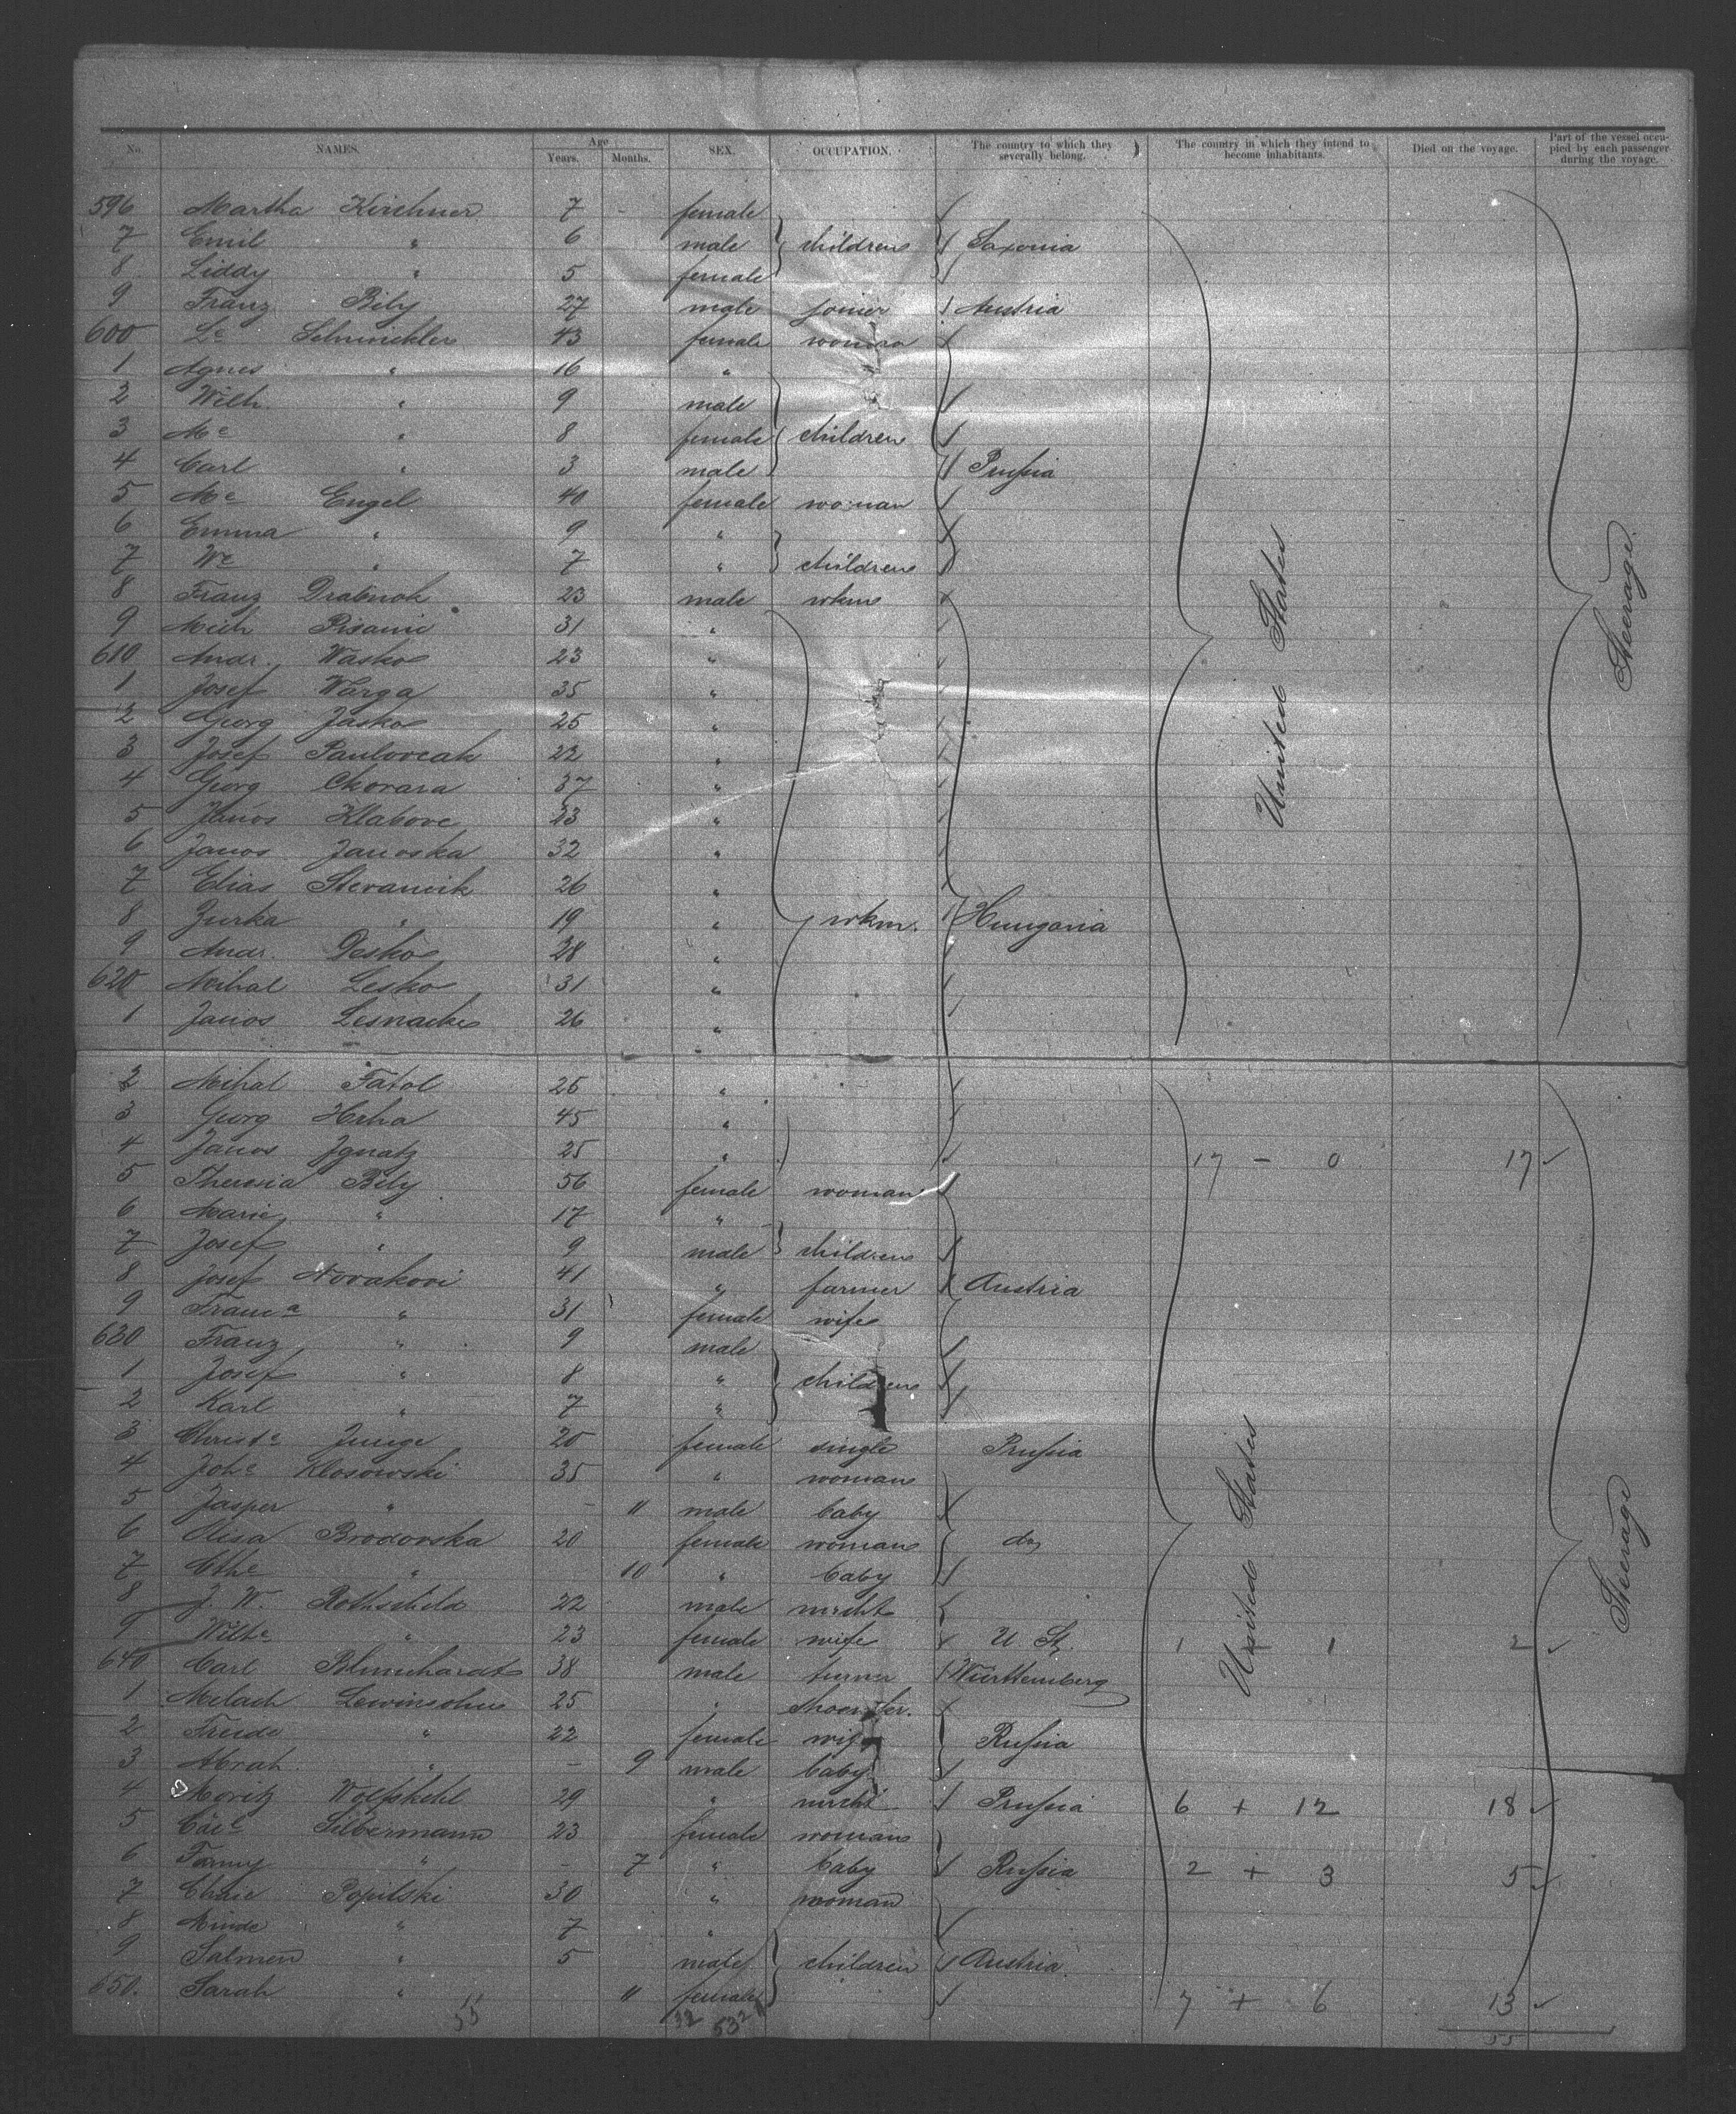 No. NAMES. Age Years. Months. SEX. OCCUPATION. The country to which they severally belong. The country in which they intend to become inhabitants. Died on the voyage. Part of the vessel occupied by each passenger during the voyage.
596 Martha Kirchner 7 - female
7 Emil " 6 male children Saxonia
8 Liddy " 5 female
9 Franz Bily 27 male joiner Austria
600 43 female woman
1 Agnes " 16 "
2 Wilh. " 9 male
3 Me " 8 female children
4 Carl " 3 male Prussia
5 Me Engel 40 female woman
6 Emma " 9 "
7 We " 7 " children
8 Franz Drabnok 23 male wkm
9 Mich Pisanic 31 "
610 Andr. Wasko 23 "
1 Josef Warga 35 "
2 Georg Jasko 25 "
3 Josef Paulovcak 22 "
4 Georg Chovara 37 "
5 Janos Klabove 23 "
6 Janos Janoska 32 "
7 Elias Stevancik 26 "
8 Jurka " 19 " wkm. Hungaria
9 Andr. Desko 28 "
620 Mihal Lesko 31 "
1 Janos 26 "
United States
Steerage.
2 Mihal Fatol 25 "
3 Georg Hrha 45 "
4 Janos Ignatz 25 " 17 - 0 17
5 Theresia Bily 56 female woman
6 Marie " 17 "
7 Josef " 9 male children
8 Josef Novakovi 41 " farmer Austria
9 Franca " 31 female wife
630 Franz " 9 male
1 Josef " 8 " children
2 Karl " 7 "
3 Junge 20 female single Prussia
4 Johe Klosowski 35 " woman
5 Jasper " - 11 male baby
6 Brodovska 20 female woman do
7 " 10 " baby
8 J. W. Rothschild 22 male mrcht
9 Wilhe " 23 female wife U St. 1 1 2
640 Carl Blumhardt 38 male turner Württemberg
1 Lewinsohn 25 "
2 Freide " 22 female wife Russia
3 Abrah. " - 9 male baby
4 Moritz Wolfskehl 29 " mrcht Prussia 6 + 12 18
5 Silbermann 23 female woman
6 Fanny " - 7 " baby Russia 2 + 3 5
7 Popilski 30 " woman
8 Minde " 7 "
9 Salmen " 5 male children Austria.
650. Sarah " 11 female 7 + 6 13
United States
Steerage
55 32 53 55